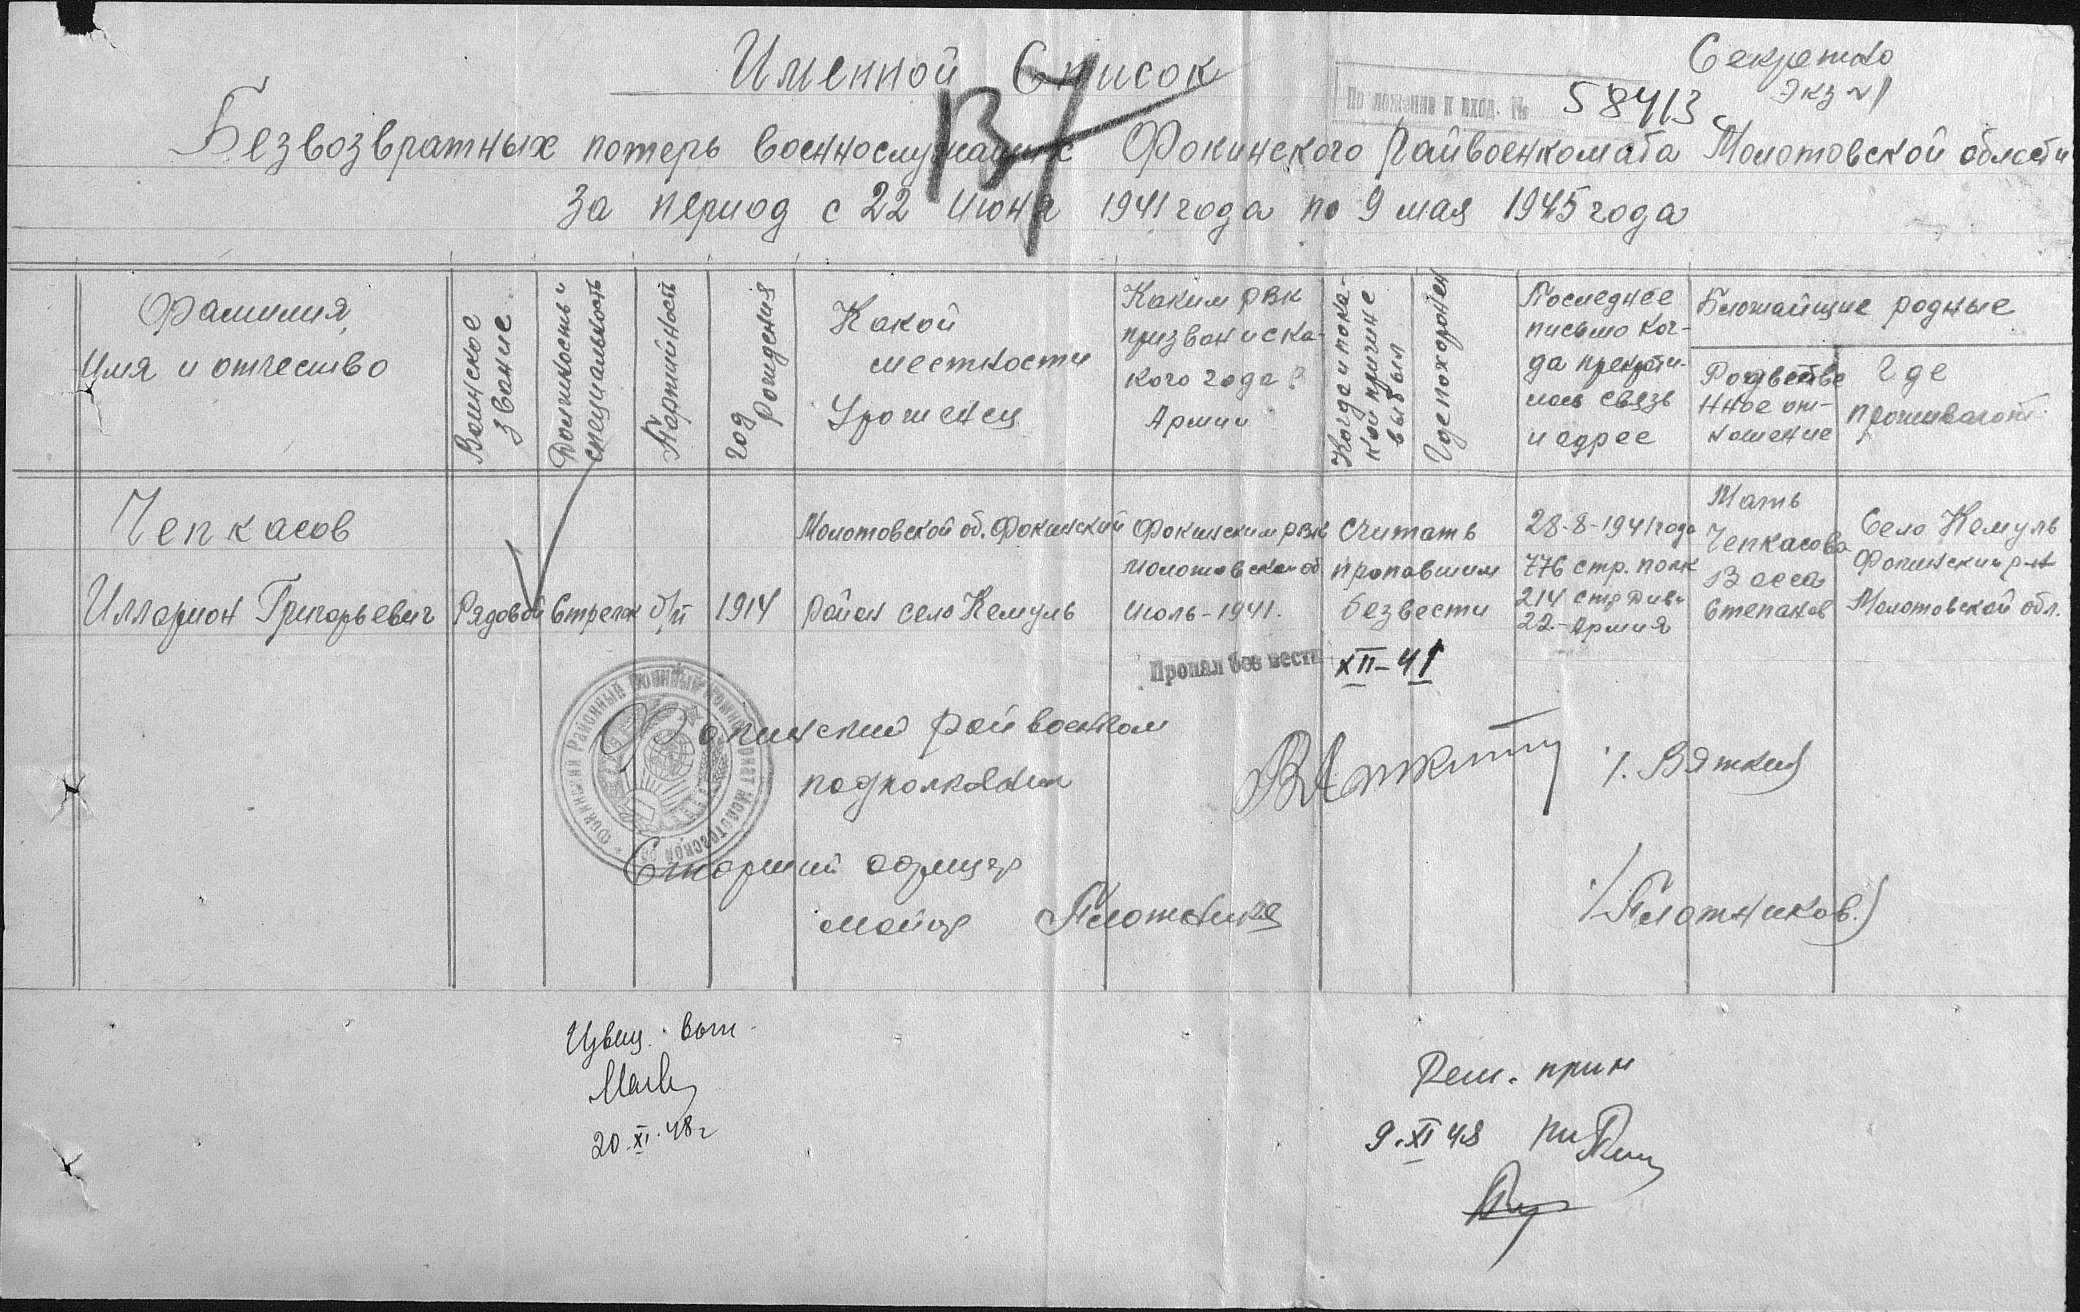 Именной Список
Секретно
Экз № 1
По ложение к вход. № 58413с
В7
Безвозвратных потерь военнослужащих Фокинского Райвоенкомата Молотовской области
За период с 22 июня 1941 года по 9 мая 1945 года
Фамилия,
Имя и отчество
Воинское
звание
Должность и
специальность
Партийность
Год
рождения
Какой
местности
Уроженец
Каким РВК
призван и ска-
кого года?
Армии
Когда и по ка-
кой причине
выбыл
Где похоронен
Последнее
письмо ког-
да прекрати-
лась связь
и адрес
Ближайщие родные
Родвстве
нное от-
ношение
Где
проживают
Чепкасов
Илларион Григорьевич
Рядовой
Стрелок
б/п
1914
Молотовской об. Фокинский
Район село Кемуль
Фокинским РВК
Молотовской об
Июль-1941.
Считать
пропавшим
безвести
28-8-1941 года
776 стр. полк
214 стр Див.
22.-Армия
Мать
Чепкасова
Васса
Степанов
Село Кемуль
Фокинский р-н
Молотовской обл.
Пропал без вести XII-41
Фокинский районный военный комиссариат Молотовской об
Фокинский райвоенком
подполковник
/. Вяткин)
Старший офицер
майор
/Плотников.)
Извещ. выт.
20.XI.48г
Реш. прин
9.XI 48